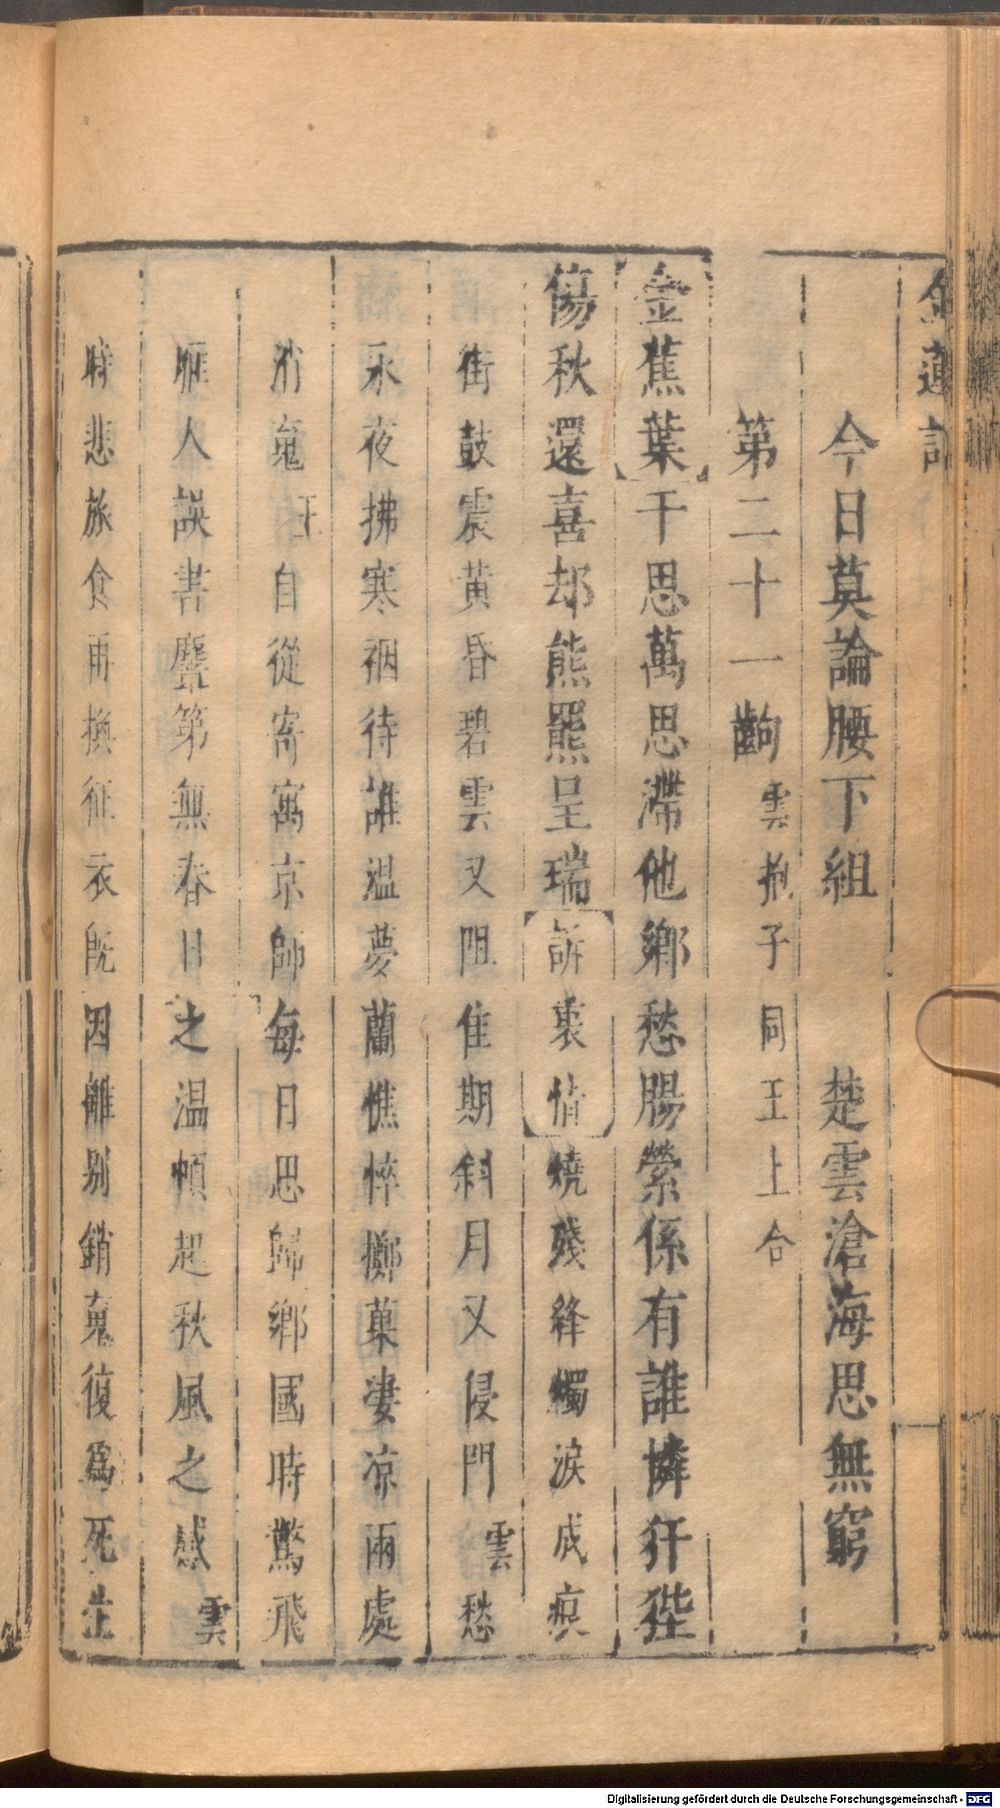 金蓮記
今日莫論腰下組　楚雲滄海思無窮
第二十一齣雲抱子同王上合
金蕉葉千思萬思滯他鄉愁腸縈係有誰憐犴狴
傷秋還喜却熊羆呈瑞訴衷情燒殘絳燭淚成痕
街鼓震黃昏碧雲又阻佳期斜月又侵門雲愁
永夜拂寒裀待誰溫夢蘭憔悴擲菓凄凉兩處
消䰟王自從寄寓京師每日思歸鄉國時驚飛
雁人誤書麞第無春日之温頓起秋風之感雲
時悲旅食再換征衣旣因離別銷䰟復爲死生
Digitalisierung gefördert durch die Deutsche Forschungsgemeinschaft - DFG